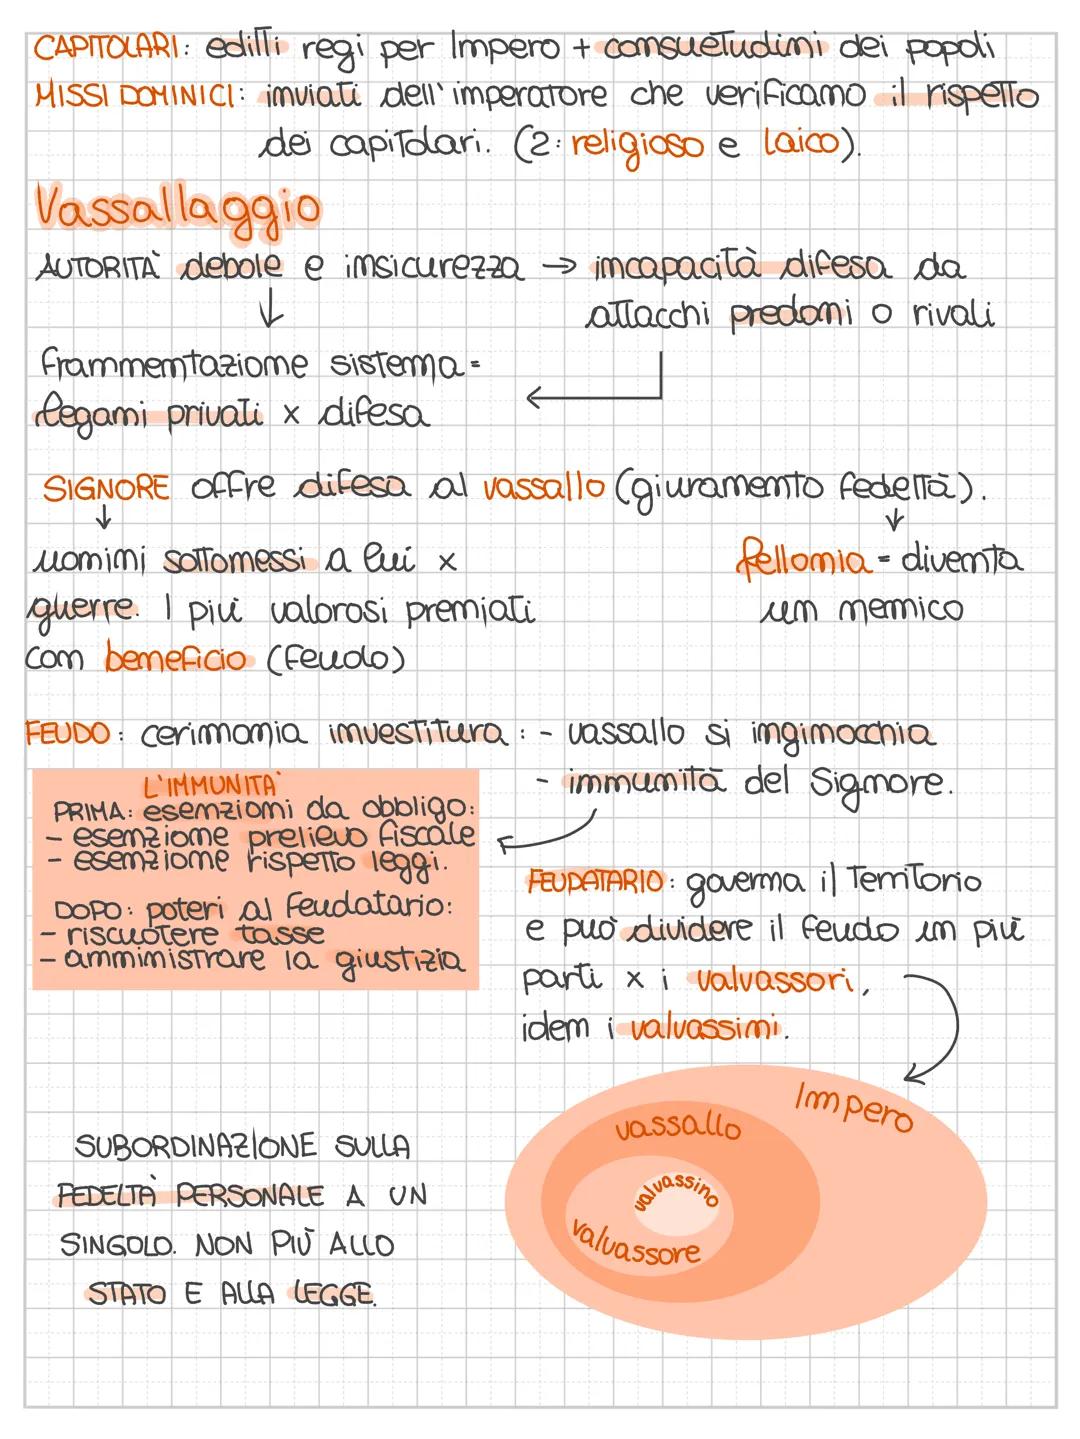 CAPITOLARI: editti regi per Impero + consuetudini dei popoli
MISSI DOMINICI: inviati dell'imperatore che verificano il rispetto
dei capitolari. (2: religioso e laico).
Vassallaggio
AUTORITÀ debole e insicurezza → incapacità difesa da
attacchi predoni o rivali
frammentazione sistema =
legami privati x difesa
SIGNORE offre difesa al vassallo (giuramento fedeltà).
uomini sottomessi a lui x
guerre. I più valorosi premiati
con beneficio (feudo)
fellonia = diventa
un nemico
FEUDO: cerimonia investitura: - vassallo si inginocchia
- immunità del Signore.
L'IMMUNITÀ
PRIMA: esenzioni da obbligo:
- esenzione prelievo fiscale
- esenzione rispetto leggi.
DOPO: poteri al feudatario:
- riscuotere tasse
- amministrare la giustizia
FEUDATARIO: governa il Territorio
e può dividere il feudo in più
parti x i valvassori,
idem i valvassini.
Impero
vassallo
valvassino
valvassore
SUBORDINAZIONE SULLA
FEDELTÀ PERSONALE A UN
SINGOLO. NON PIÙ ALLO
STATO E ALLA LEGGE.